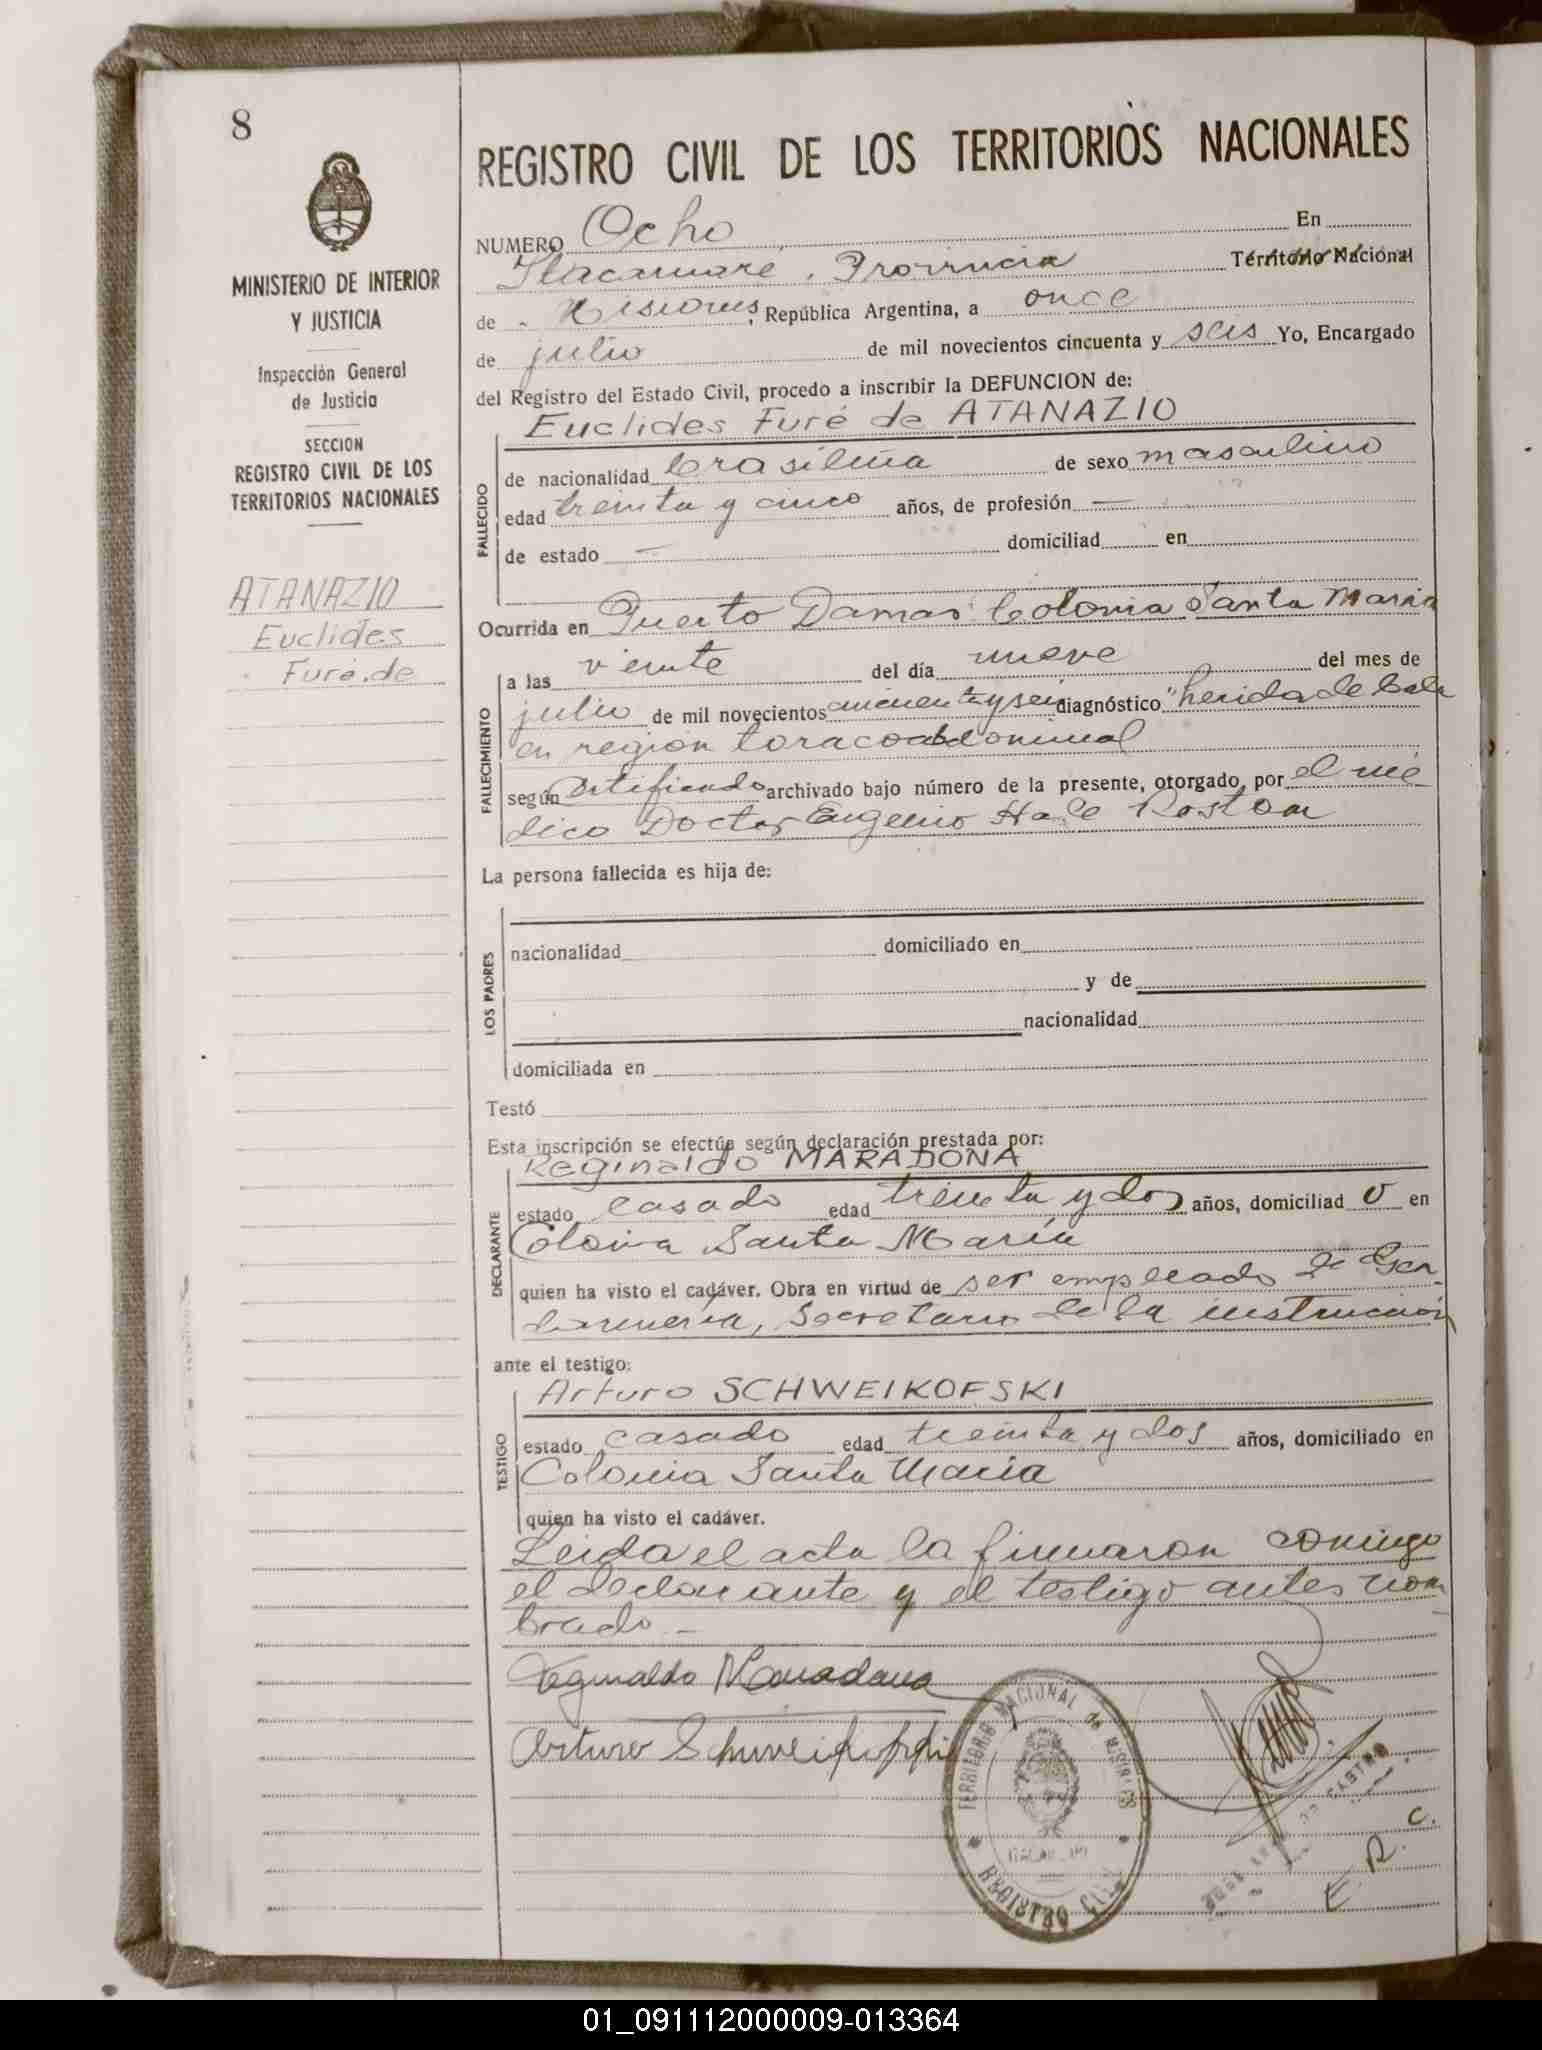 8
REGISTRO CIVIL DE LOS TERRITORIOS NACIONALES
MINISTERIO DE INTERIOR
Y JUSTICIA
Inspección General
de Justicia
SECCION
REGISTRO CIVIL DE LOS
TERRITORIOS NACIONALES
ATANAZIO
Euclides
Furé de
NUMERO Ocho En
Itacaruaré, Provincia Territorio Nacional
de Misiones, República Argentina, a once
de julio de mil novecientos cincuenta y seis Yo, Encargado
del Registro del Estado Civil, procedo a inscribir la DEFUNCION de:
Euclides Furé de ATANAZIO
FALLECIDO
de nacionalidad brasileña de sexo masculino
edad treinta y cinco años, de profesión —
de estado — domiciliad en
Ocurrida en Puerto Damas Colonia Santa María
FALLECIMIENTO
a las veinte del día nueve del mes de
julio de mil novecientos cincuenta y seis diagnóstico "herida de bala
en región toracoabdominal
según Certificado archivado bajo número de la presente, otorgado por el mé
dico Doctor Eugenio
La persona fallecida es hija de:
LOS PADRES
nacionalidad domiciliado en
y de
nacionalidad
domiciliada en
Testó
Esta inscripción se efectúa según declaración prestada por:
Reginaldo MARADONA
DECLARANTE
estado casado edad treinta y dos años, domiciliad o en
Colonia Santa María
quien ha visto el cadáver. Obra en virtud de ser empleado de Gen-
darmería, Secretario de la instrucción
ante el testigo:
Arturo SCHWEIKOFSKI
TESTIGO
estado casado edad treinta y dos años, domiciliado en
Colonia Santa María
quien ha visto el cadáver.
Leida el acta la firmaron conmigo
el declarante y el testigo antes nom-
brado. —
Reginaldo Maradona
Arturo Schweikofski
TERRITORIO NACIONAL de MISIONES
REGISTRO CIVIL
DE CASTRO
E. R. C.
01_091112000009-013364